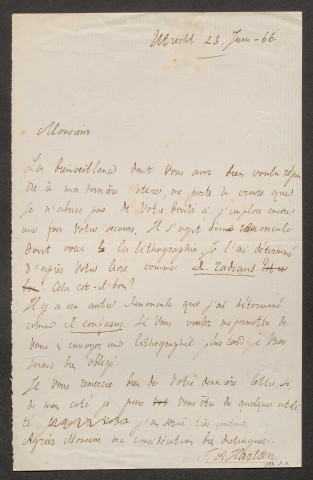 Utrecht 23. Juin - 66.
Monsieur
La bienveillance dont vous avez bien voulu répon
dre à ma dernière lettre, me porte à croire que
je n'abuse pas de votre bonté si j'implore encore
une fois votre secours. Il s'agit d'une renoncule
dont vous la lithographie. Je l'ai déterminé
d'après votre livre, comme R. radians
Cela est-il bon?
Il y a un autre Renoncule que j'ai déterminé
comme R. confusus. Si vous voulez me permettre de
vous en envoyer une lithographie plus tard, je vous
serais bien obligé.
Je vous remercie bien de votre dernière lettre, si
de mon coté je puis vous être de quelque utili
té j'en serai très-content.
Agréez Monsieur ma considération bien distinguée.
Hartsen